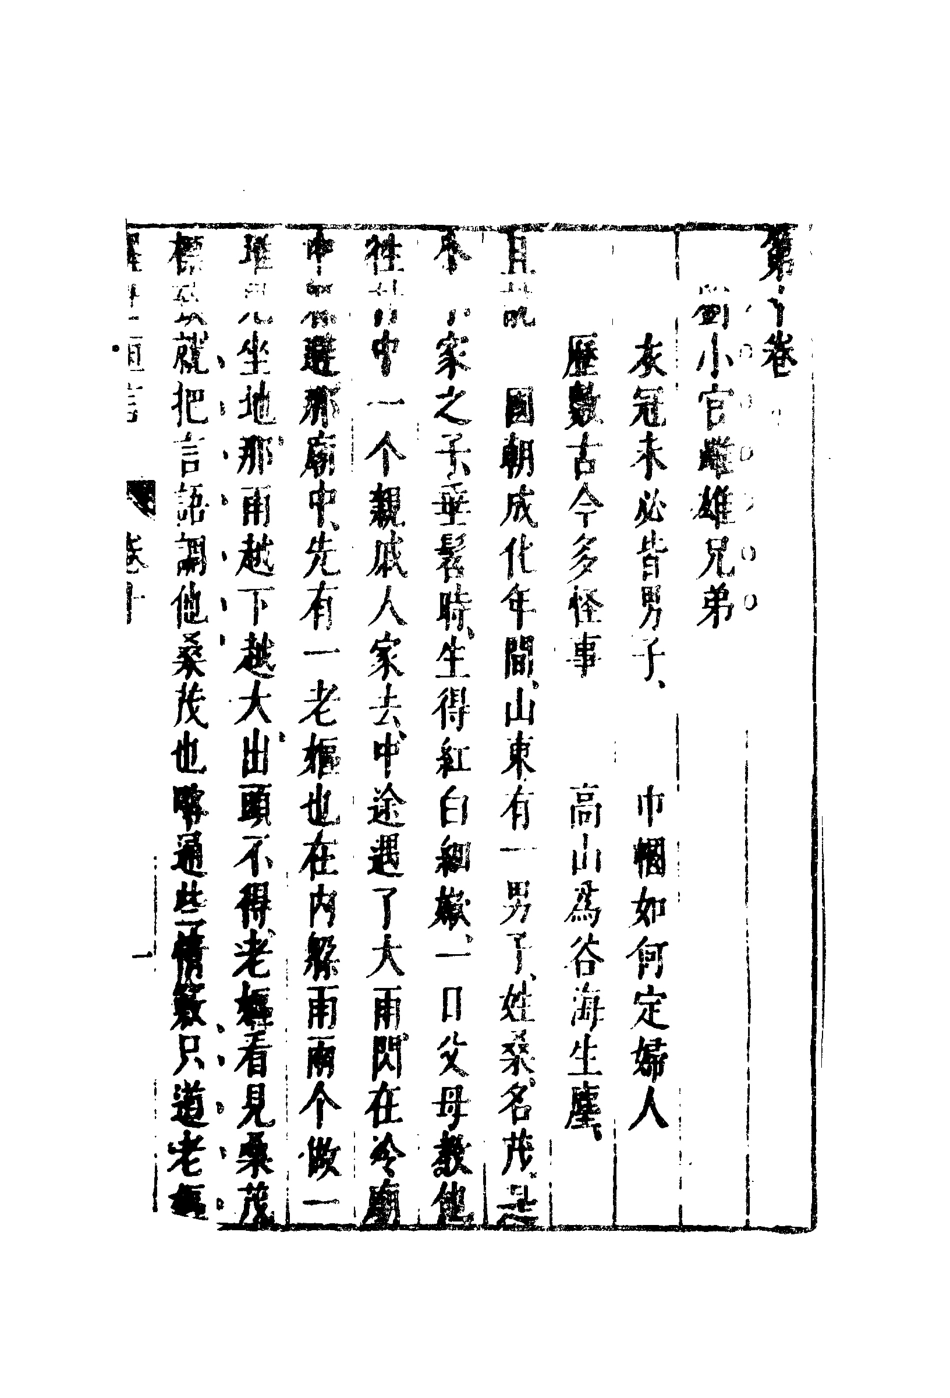 第十卷
劉小官雌雄兄弟
衣冠未必皆男子、　巾幗如何定婦人
歷數古今多怪事　高山爲谷海生塵、
且說　國朝成化年間、山東有一男子、姓桑、名茂、是
小家之子、垂髫時、生得紅白細嫩、一日父母教他
往　中一个親戚人家去、中途遇了大雨、閃在冷廟
中　避那廟中、先有一老嫗也在內躲雨兩个做一
堆兒坐地那雨越下越大出頭不得、老嫗看見桑茂
標致就把言語調他桑茂也略通些情竅只道老嫗
醒世恒言　卷十　一